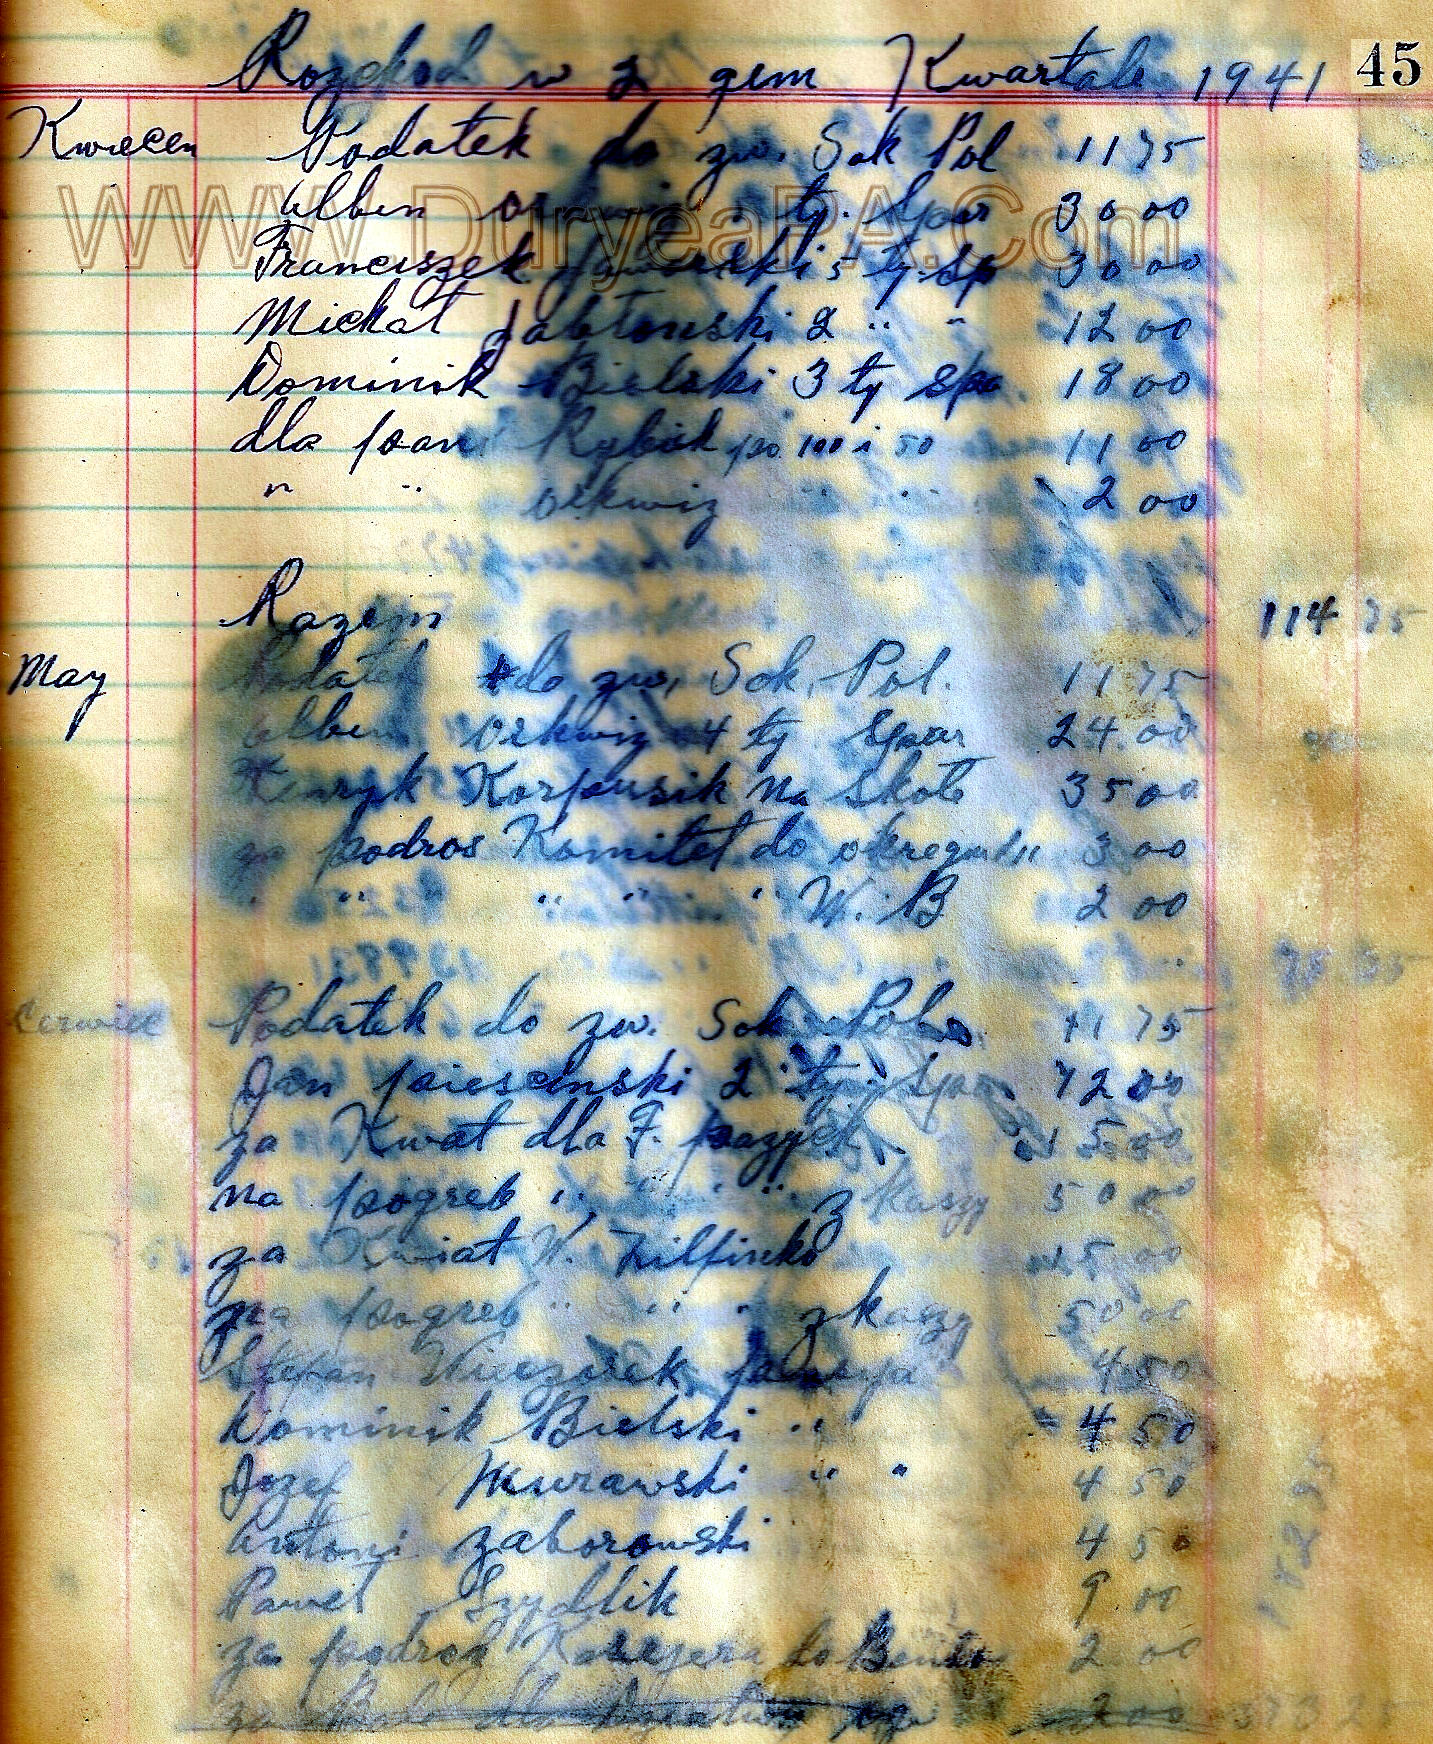 Rozchod w 2 gem Kwartale 1941 45
Kwiecen Podatek do zw. Sok Pol 11 75
WWW.DuryeaPA.Com
Alben ty. Spar 30 00
Franciszek 5 ty. Sp 30 00
Michał Jabłonski 2 " " 12 00
Dominik Bielski 3 ty Spa. 18 00
dla pani Rybak po 100 i 50 11 00
" " Orkwiz 2 00
Razem 114 75
May Podatek do zw, Sok, Pol. 11 75
Alben Orkwiz 4 ty Spar 24.00
Henryk Korpusik na 35 00
za podros Komitet do okregu 3 00
" " " " " W. B 2 00
75 75
Cerwiec Podatek do zw. Sok Pol 11 75
Jan 2 ty. Spa. 12 00
za Kwat dla F. 15 00
na pogreb " " " " z kaszy 50 00
za Kwiat W. 15 00
na pogreb " " " z kaszy 50 00
Stefan Wieczorek 4.50
Dominik Bielski " 4 50
Jozef Murawski " " 4 50
Antoni Zaborowski 4 50
Paweł Szydlik 9.00
za podroz do 2 00
za dla 2 00